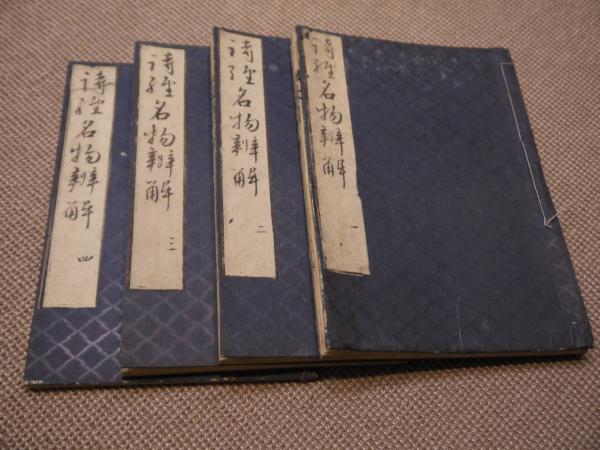 詩經名物辨解 一
詩經名物辨解 二
詩經名物辨解 三
詩經名物辨解 四